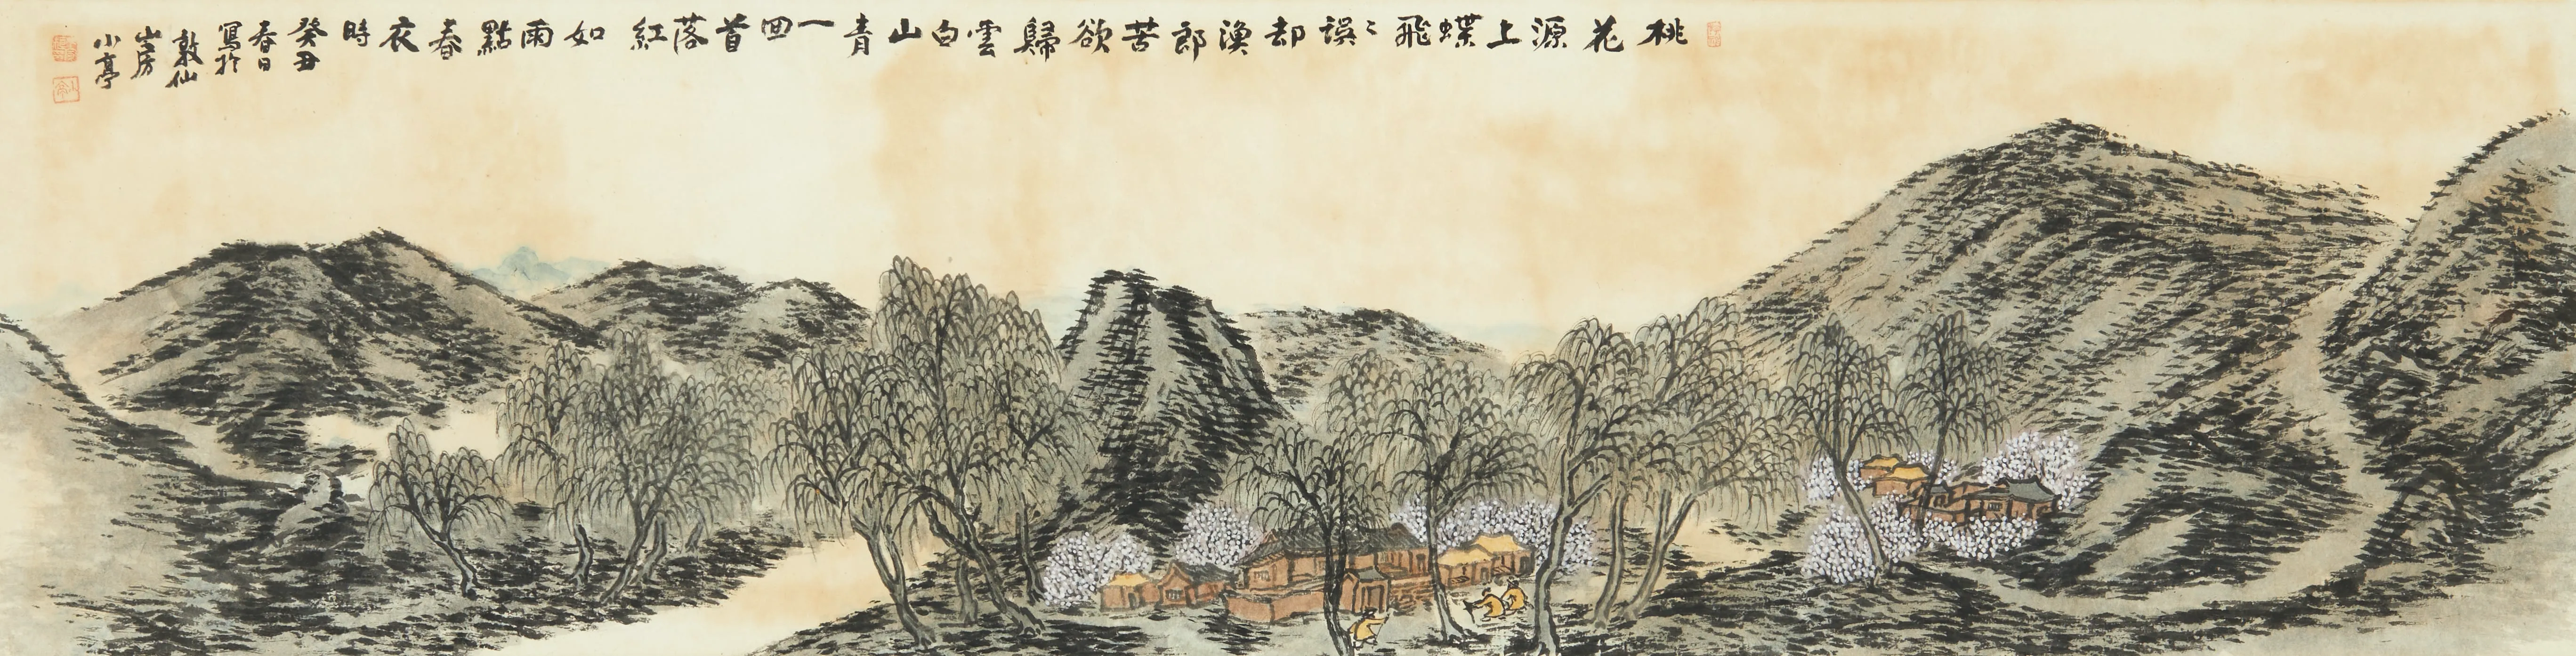 桃花源上蝶飛飛誤却漁郎苦欲歸雲白山青一回首落紅如雨點春衣時
癸丑
春日
寫於
敦仙
山房
小亭